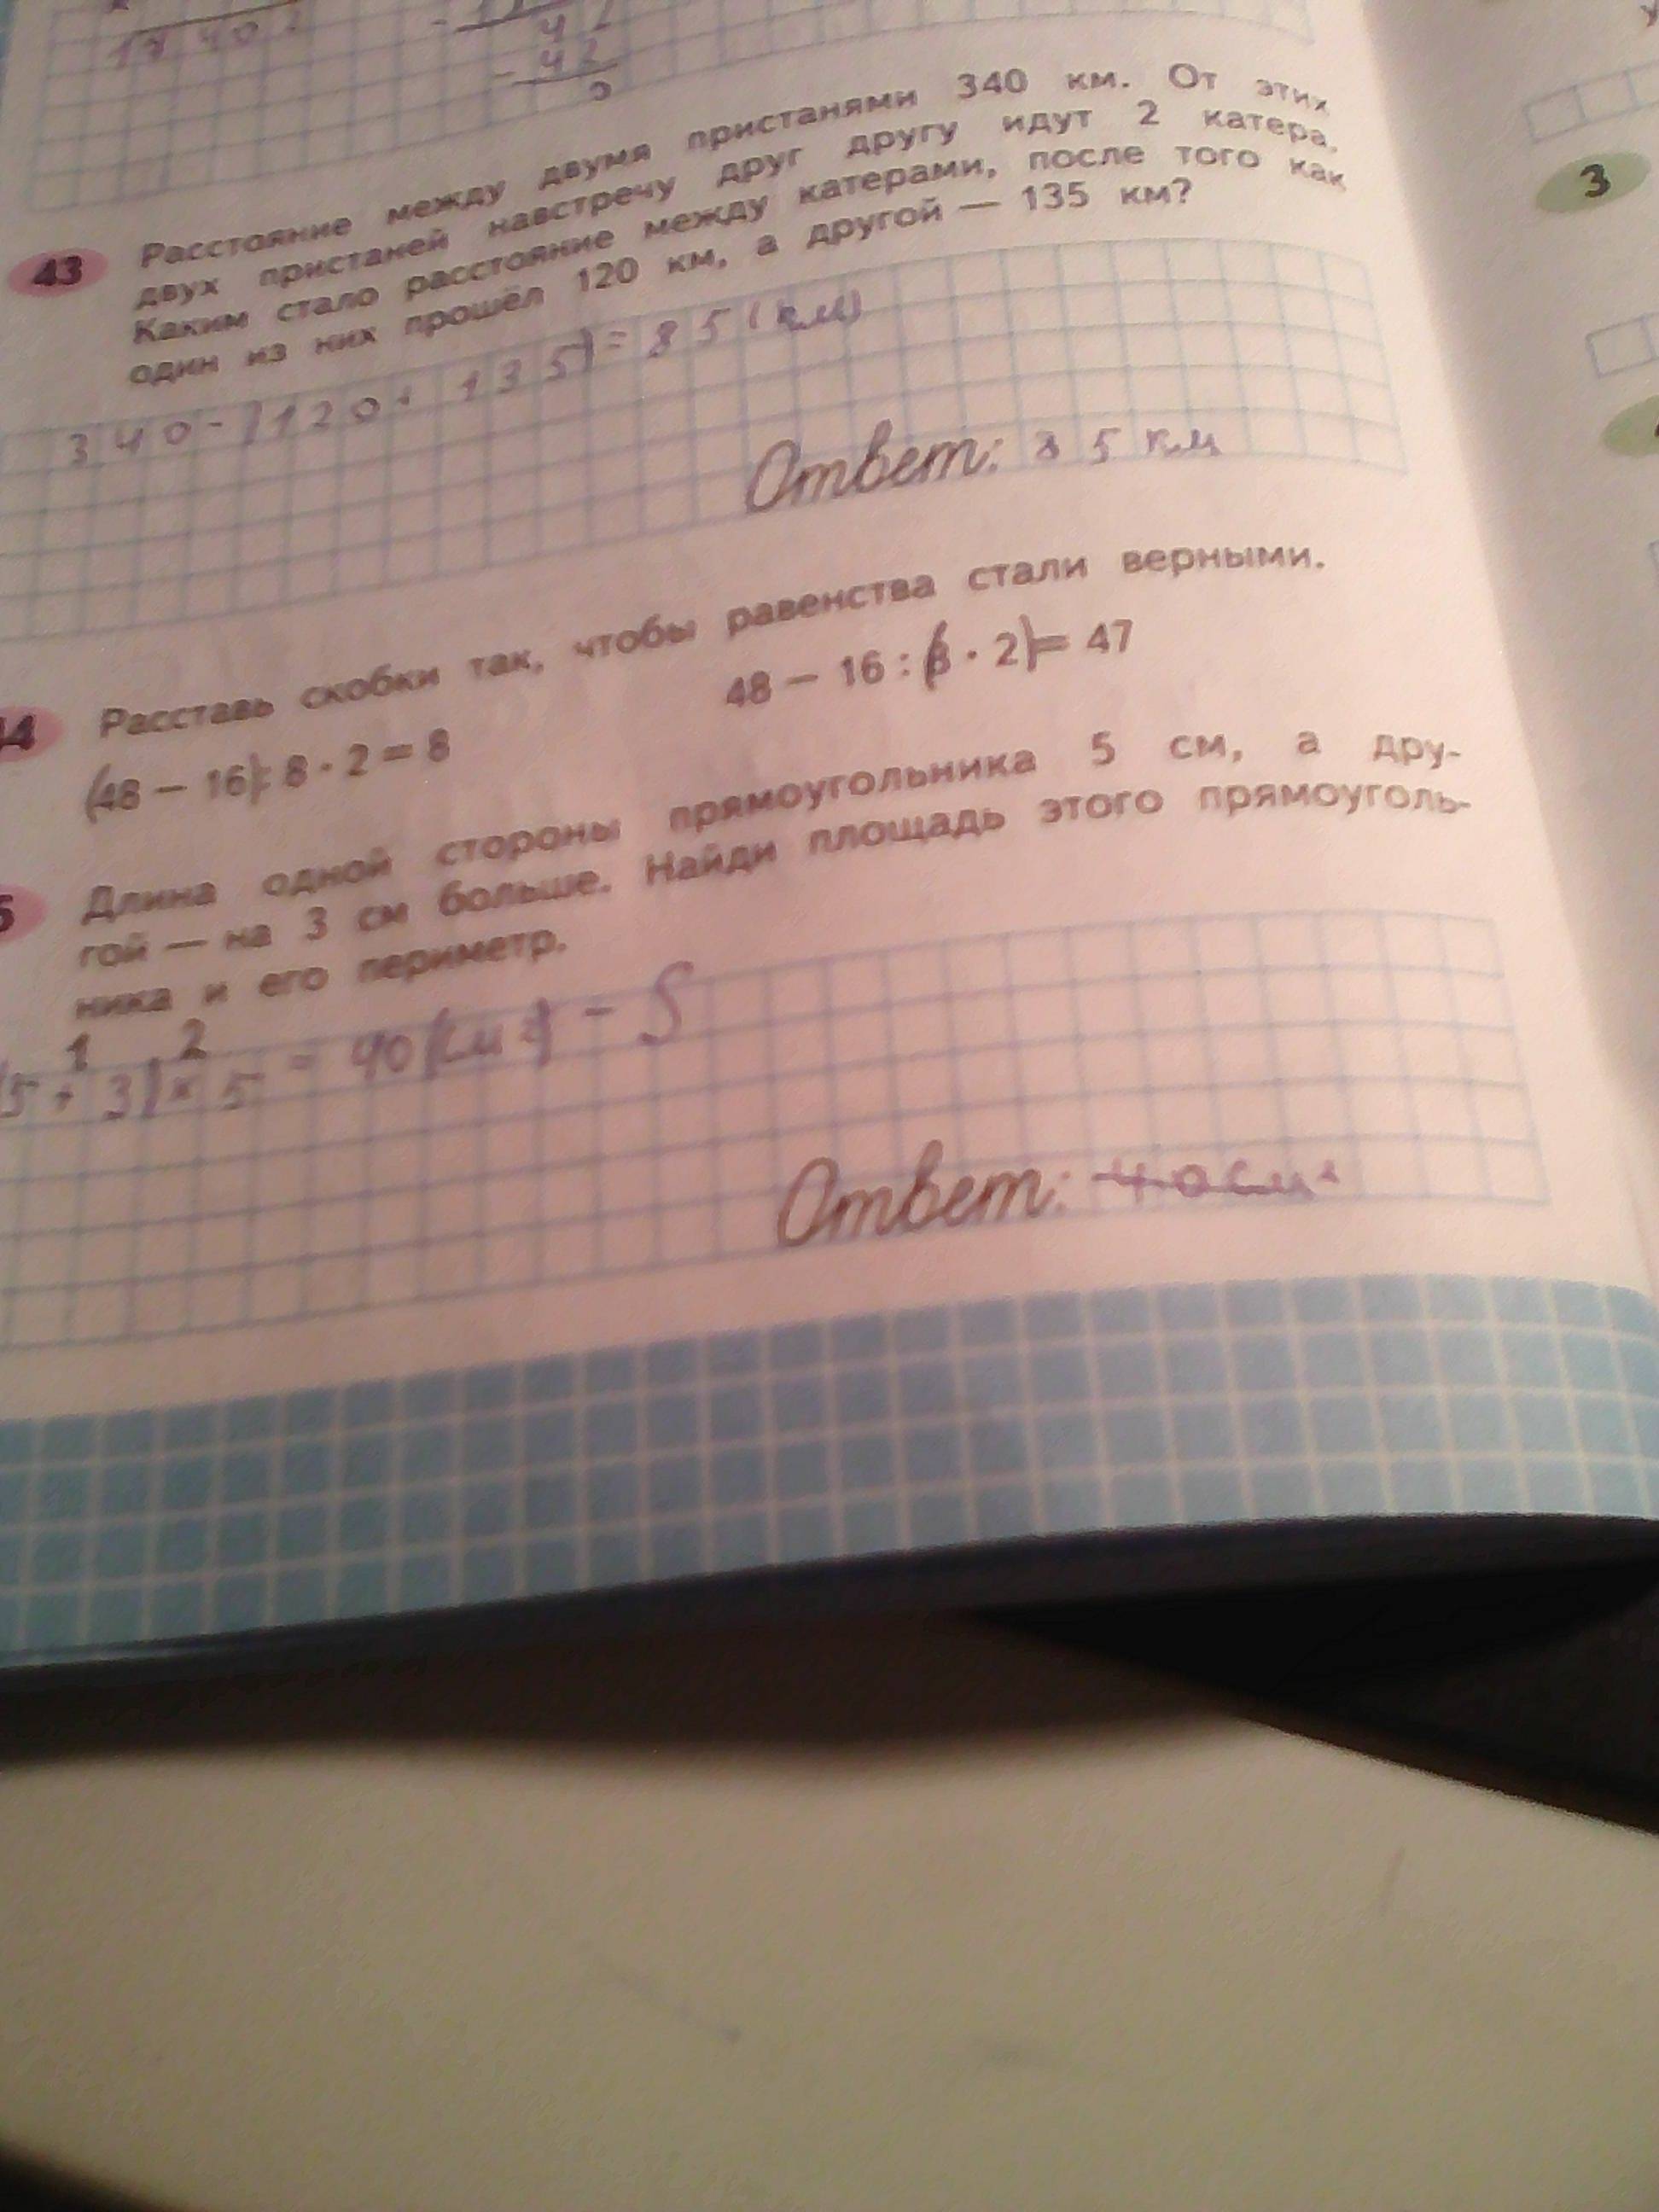 17 402
42
- 42
0
43 Расстояние между двумя пристанями 340 км. От этих
двух пристаней навстречу друг другу идут 2 катера.
Каким стало расстояние между катерами, после того как
один из них прошёл 120 км, а другой — 135 км?
340-(120+135)=85(км)
Ответ: 85 км
44 Расставь скобки так, чтобы равенства стали верными.
(48 — 16):8 · 2 = 8 48 — 16 : (8 · 2)= 47
5 Длина одной стороны прямоугольника 5 см, а дру-
гой — на 3 см больше. Найди площадь этого прямоуголь-
ника и его периметр.
1 2
(5 + 3)× 5 = 40(см²) - S
Ответ: 40 см²
3